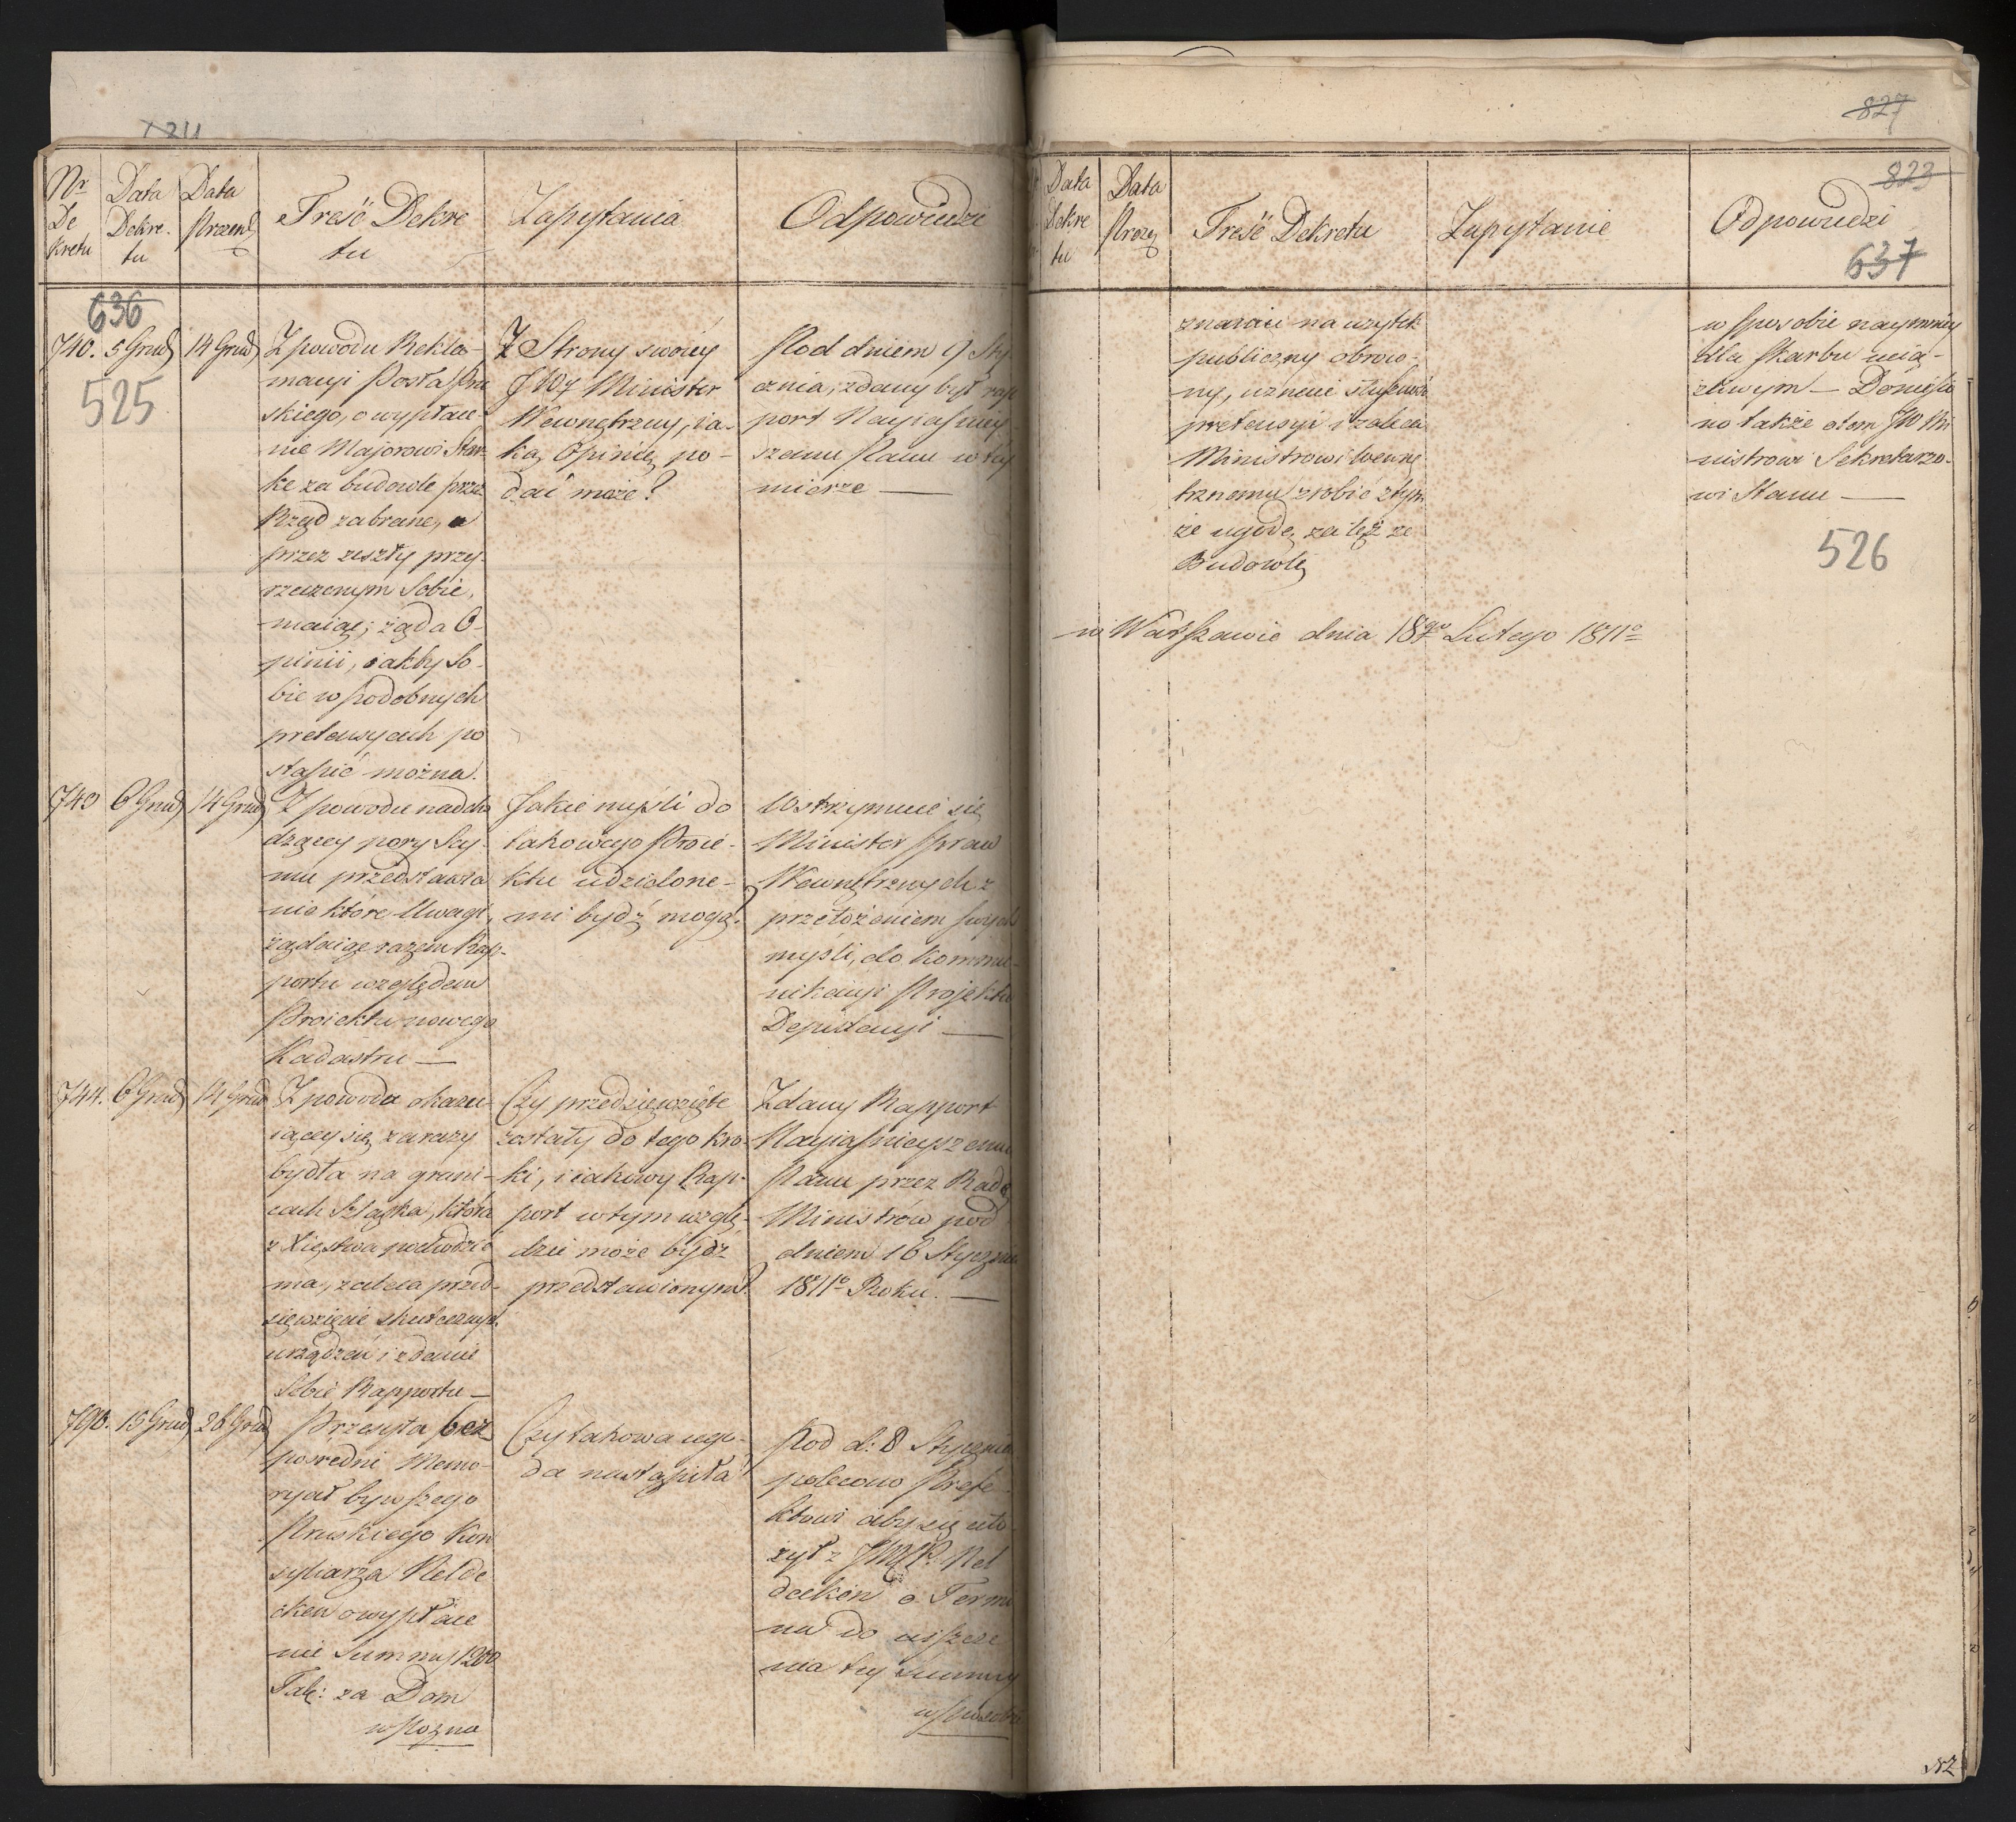 Nr De kretu
Data Dekre- tu
Data Prezend
Treść Dekre tu
Zapytania
Odpowiedzi
636
525
740. 5 Grud 14 Grud
Z powodu Rekla-
macyi Posła Pru
skiego, o wypłace-
nie Majorowi Star
ke za budowle przez
Rząd zabrane, a
przez zeszły przy-
rzeczonym Sobie
maiąc; żąda O-
pinii, iakby So-
bie w podobnych
pretensyach po
stąpić można.
Z Strony swoiey
JW Minister
Wewnętrzny, ia-
ką Opinię po-
dać może?
Pod dniem 9 Sty
cznia, zdany był rap
port Nayiaśniey-
szemu Panu w tey
mierze —
743 6 Grud 14 Grud
Z powodu nadcho
dzącey pory Sey-
mu przedstawia
niektóre Uwagi,
żądaiąc razem Rap-
portu względem
Proiektu nowego
Kadastru —
Jakie myśli do
takowego Proie-
ktu udzielone-
mi bydź mogą?
Wstrzymuie się
Minister Spraw
Wewnętrznych z
przełożeniem swych
myśli, do Kommu-
nikacyi Projektu
Deputacyi —
744. 6 Grud 14 Grud
Z powodu okazu-
iącey się zarazy
bydła na grani-
cach Szląska, która
z Xięstwa pochodzić
ma, zaleca przed-
sięwzięcie skutecznych
urządzeń i zdanie
Sobie Rapportu —
Czy przedsięwzięte
zostały do tego kro-
ki, i iakowy Rap-
port w tym wzglę-
dzie może bydź
przedstawionym?
Zdany Rapport
Nayiaśnieyszemu
Panu przez Radę
Ministrów pod
dniem 16 Stycznia
1811º Roku. —
790. 15 Grud 26 Grud
Przesyła bez
posredni Memo-
ryał bywszego
Pruskiego Kon
syliarza Nelde
cken o wypłace
nie Summy 1200
Tal: za Dom
w Pozna
Czy takowa ugo-
da nastąpiła
Pod d: 8 Stycznia
polecono Prefe-
ktowi aby się uło
żył z JMP. Nel
decken o Termi
na do uiszcze
nia tey Summy
w sposobie
827
823
637
Data Dekre tu
Data Preze
Treść Dekretu
Zapytanie
Odpowiedzi
znaniu na użytek
publiczny obroco-
ny, uznaie słuszność
pretensyi i zaleca
Ministrowi Wewnę
trznemu zrobić z tym
że ugodę za też ze
Budowlę
w sposobie naymniey
dla skarbu ucią-
żliwym — Doniesio
no także o tem JW Mi
nistrowi Sekretarzo-
wi Stanu —
526
w Warszawie dnia 18go Lutego 1811º